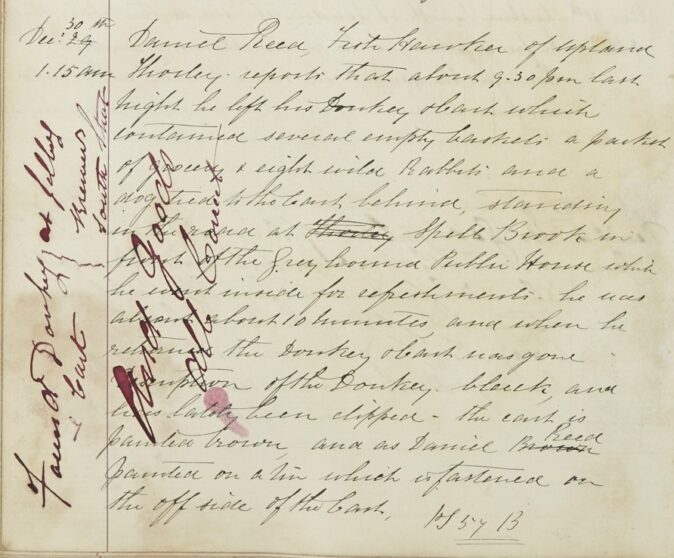 30th
Dec. 29
1.15 am
Daniel Reed, Fish Hawker of Upland
Thorley. reports that about 9.30 pm last
night he left his Donkey & Cart which
contained several empty baskets a packet
of grocery & eight wild Rabbits and a
dog tied to the Cart behind, standing
in the road at Thorley Spell Brook in
front of the Greyhound Public House which
he went inside for refreshments. he was
absent about 10 minutes, and when he
returned the Donkey & Cart was gone.
description of the Donkey. black, and
has lately been clipped - the cart is
painted brown, and as Daniel Brown Reed
painted on a tin which is fastened on
the off side of the Cart,
PS 57 B
Found Donkey
& Cart
at
South Street
and Goods
all